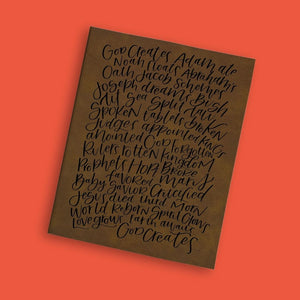 God Creates Adam ate
Noah floats Abraham's
Oath Jacob schemes
Joseph dreams Bush
Talked Sea Split Law
Spoken tablets broken
Judges appointed Kings
anointed God Forgotten
Rulers rotten Kingdom
Prophets Hope Broke
favored Mary
Baby Savior Crucified
Jesus died third Morn
World Reborn Spirit Groans
Love grows Earth awaits
God Creates